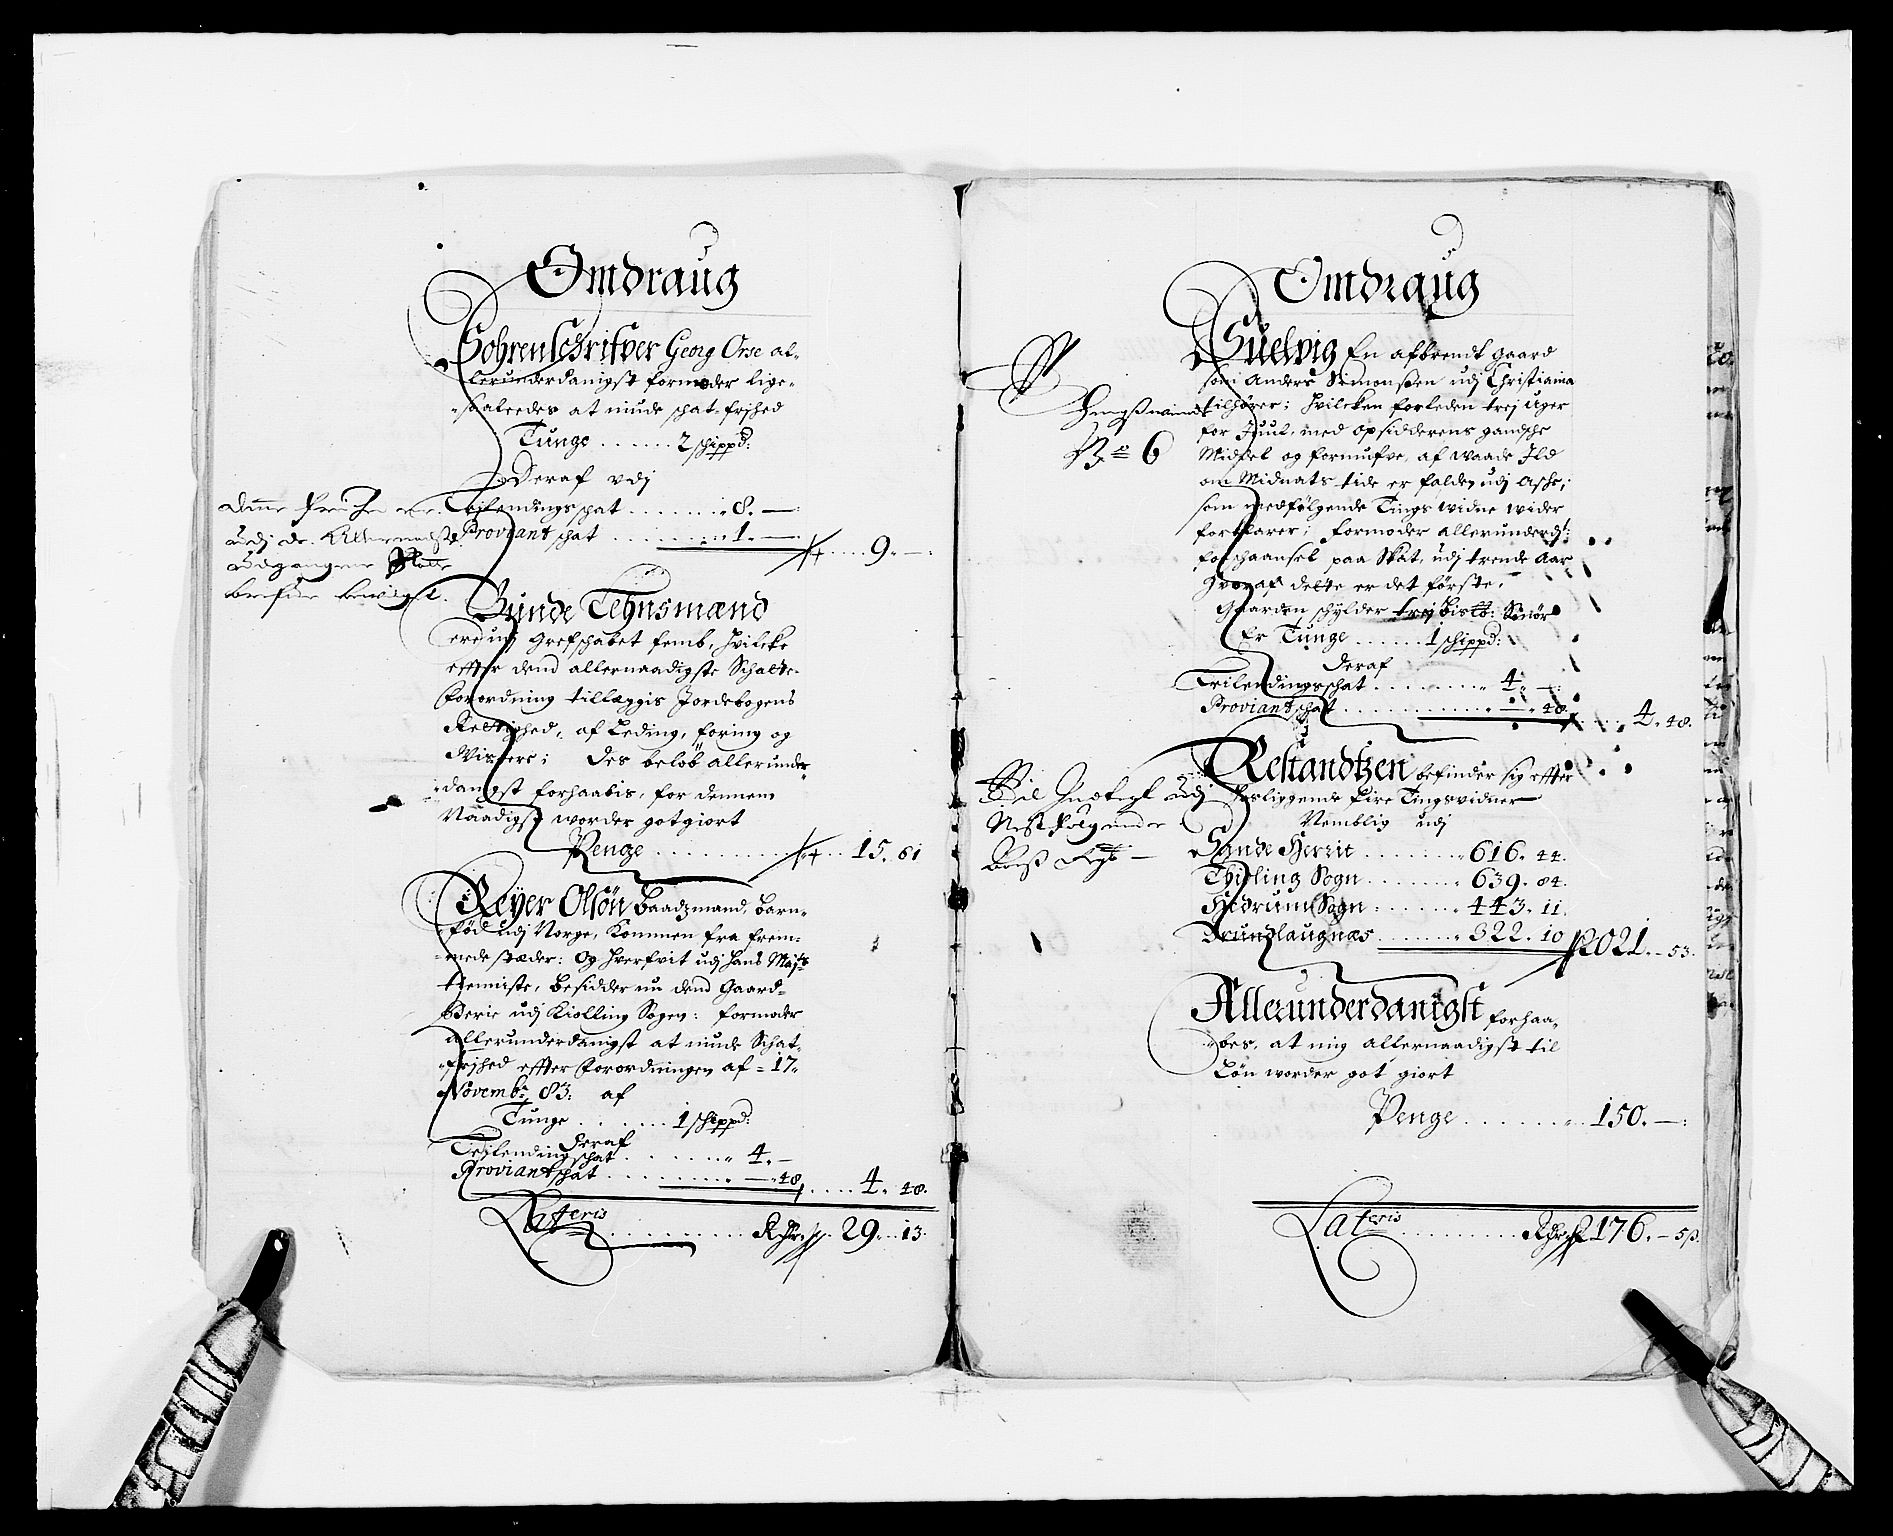 Omdraug
Sohrenschrifver Georg Orse al-
lerunderdanigst formoder lige-
saaleedes at niude schat-frjhed
Tunge ...... 2 schippd:
Deraf udj
Leilendingsschat ........ 8. —
Proviant schat ........ 1. — 9. —
udj de
Udgangene
befindes bevilgt.
Bunde Lehnsmænd
ere udj Grefschabet femb, hvilcke
effter dend allernaadigste Schatte-
forordning tillæggis Jordebogens
Rettighed, af Leding, foring og
Wisøere; Des beløb allerunder-
danigst forhaabis, for dennem
Naadigst worder gotgiort
Penge ........ 15. 61
Reyer Olsön Baadzmand, barn-
fød udj Norge, Kommen fra frem-
mede stæder: Og hverfvit udj Hans Mayts
tienniste, besidder nu dend Gaard-
Berie udj Kiolling Sogen: formoder
allerunderdanigst at niude Schat-
frjhed effter forordningen af - 17
Novembr 83: af
Tunge ...... 1 schippd:
Deraf
Leilendingschat ........ 4. —
Proviant schat ........ — 48 .... 4. 48.
Lateris ........ Rdr 29. 13.
Omdraug
Suelvig En afbrendt gaard
som Anders Simonsen udj Christiania
tilhører; hvilcken forleden trej uger
for Juul, med opsidderens gandsche
Middel og formufve, af waade Ild
om Midnats tide er falden udj Asche;
som medfølgende Tings widne wider
forklarer; formoder allerunderdst:
forschaansel paa Skat, udj trende Aar
Hvoraf dette er det første.
Gaarden schylder trej Bistb: Smör
Er Tunge ...... 1 schippd:
Deraf
Leilendingsschat ........ 4. —
Proviant schat ........ — 48 .... 4. 48.
Tingswinde
No 6
Restandtzen befinder sig effter
hosliggende fire Tingsvidner
Nemblig udj
Sande Herrit ........ 616. 44.
Thiøling Sogn ........ 639. 84.
Hedrum Sogn ........ 443. 11.
Brundlaugnæs ........ 322. 10 2021. - 53.
udj
Nest følgende
Allerunderdanigst forhaa-
bes, at mig allernaadigst til
Løn worder got giort
Penge ........ 150. —
Lateris ........ Rdr 2176. - 5